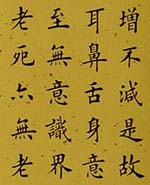 增不減是故
耳鼻舌身意
至無意識界
老死亦無老